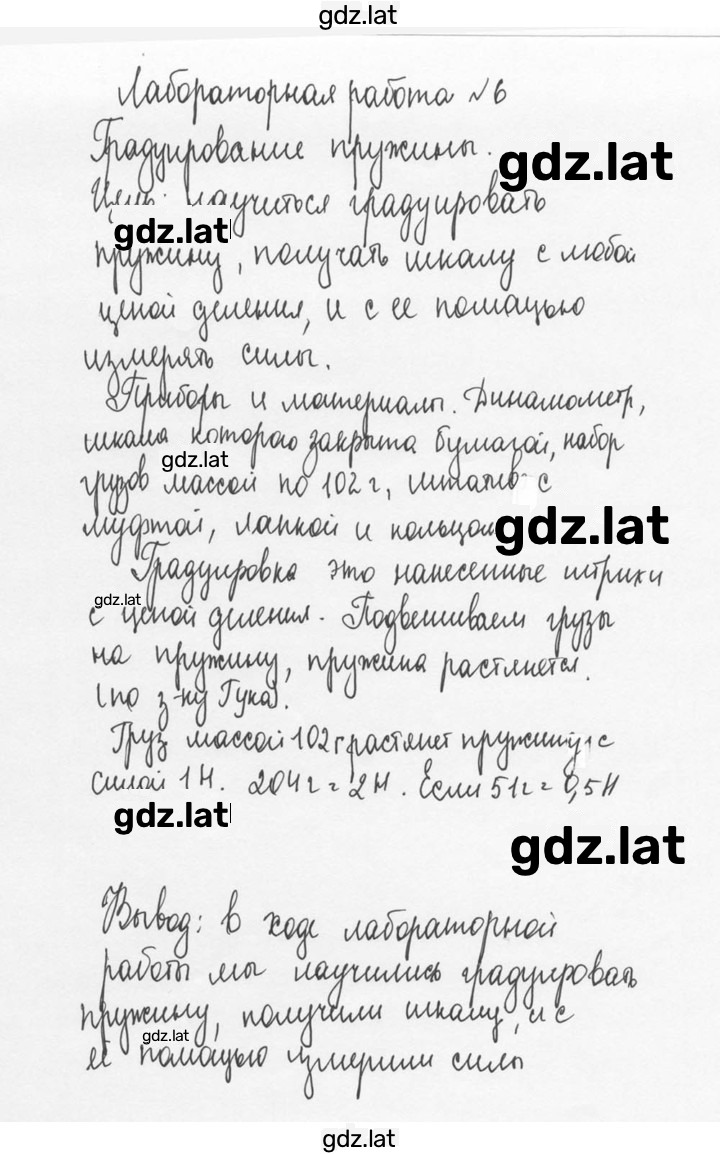 gdz.lat
Лабораторная работа №6
Градуирование пружины.
gdz.lat
Цель: научиться градуировать
gdz.lat
пружину, получать шкалу с любой
ценой деления, и с ее помощью
измерять силы.
Приборы и материалы. Динамометр,
шкала которого закрыта бумагой, набор
gdz.lat
грузов массой по 102 г, штатив с
муфтой, лапкой и кольцом
gdz.lat
Градуировка это нанесенные штрихи
gdz.lat
с ценой деления. Подвешиваем грузы
на пружину, пружина растянется.
(по з-ну Гука).
Груз массой 102 г растянет пружину с
силой 1 Н. 204 г = 2 Н. Если 51 г = 0,5 Н
gdz.lat
gdz.lat
Вывод: в ходе лабораторной
работы мы научились градуировать
пружину, получили шкалу, и с
gdz.lat
её помощью измерили силы
gdz.lat